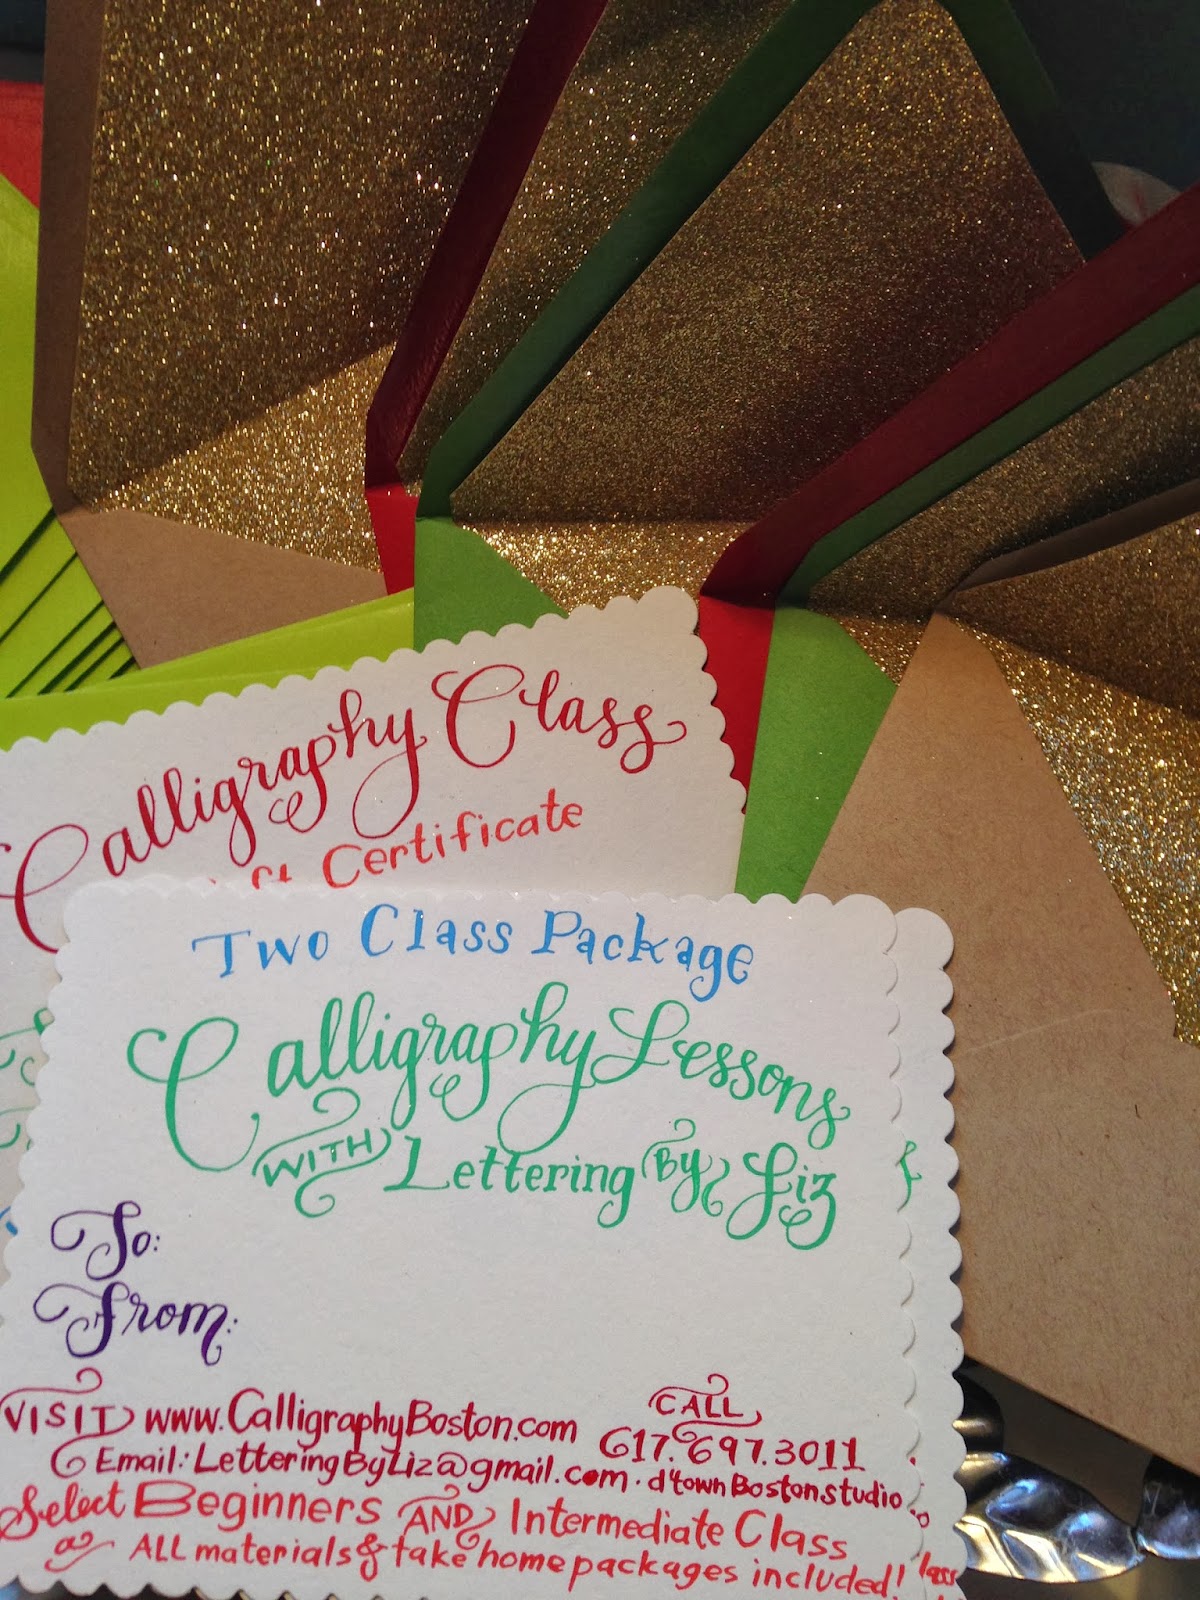 Calligraphy Class
Certificate
Two Class Package
Calligraphy Lessons
WITH Lettering By Liz
To:
From:
VISIT www.CalligraphyBoston.com
CALL
617.697.3011
Email: LetteringByLiz@gmail.com · d'town Boston studio
Select Beginners AND Intermediate Class
ALL materials & take home packages included!
lass